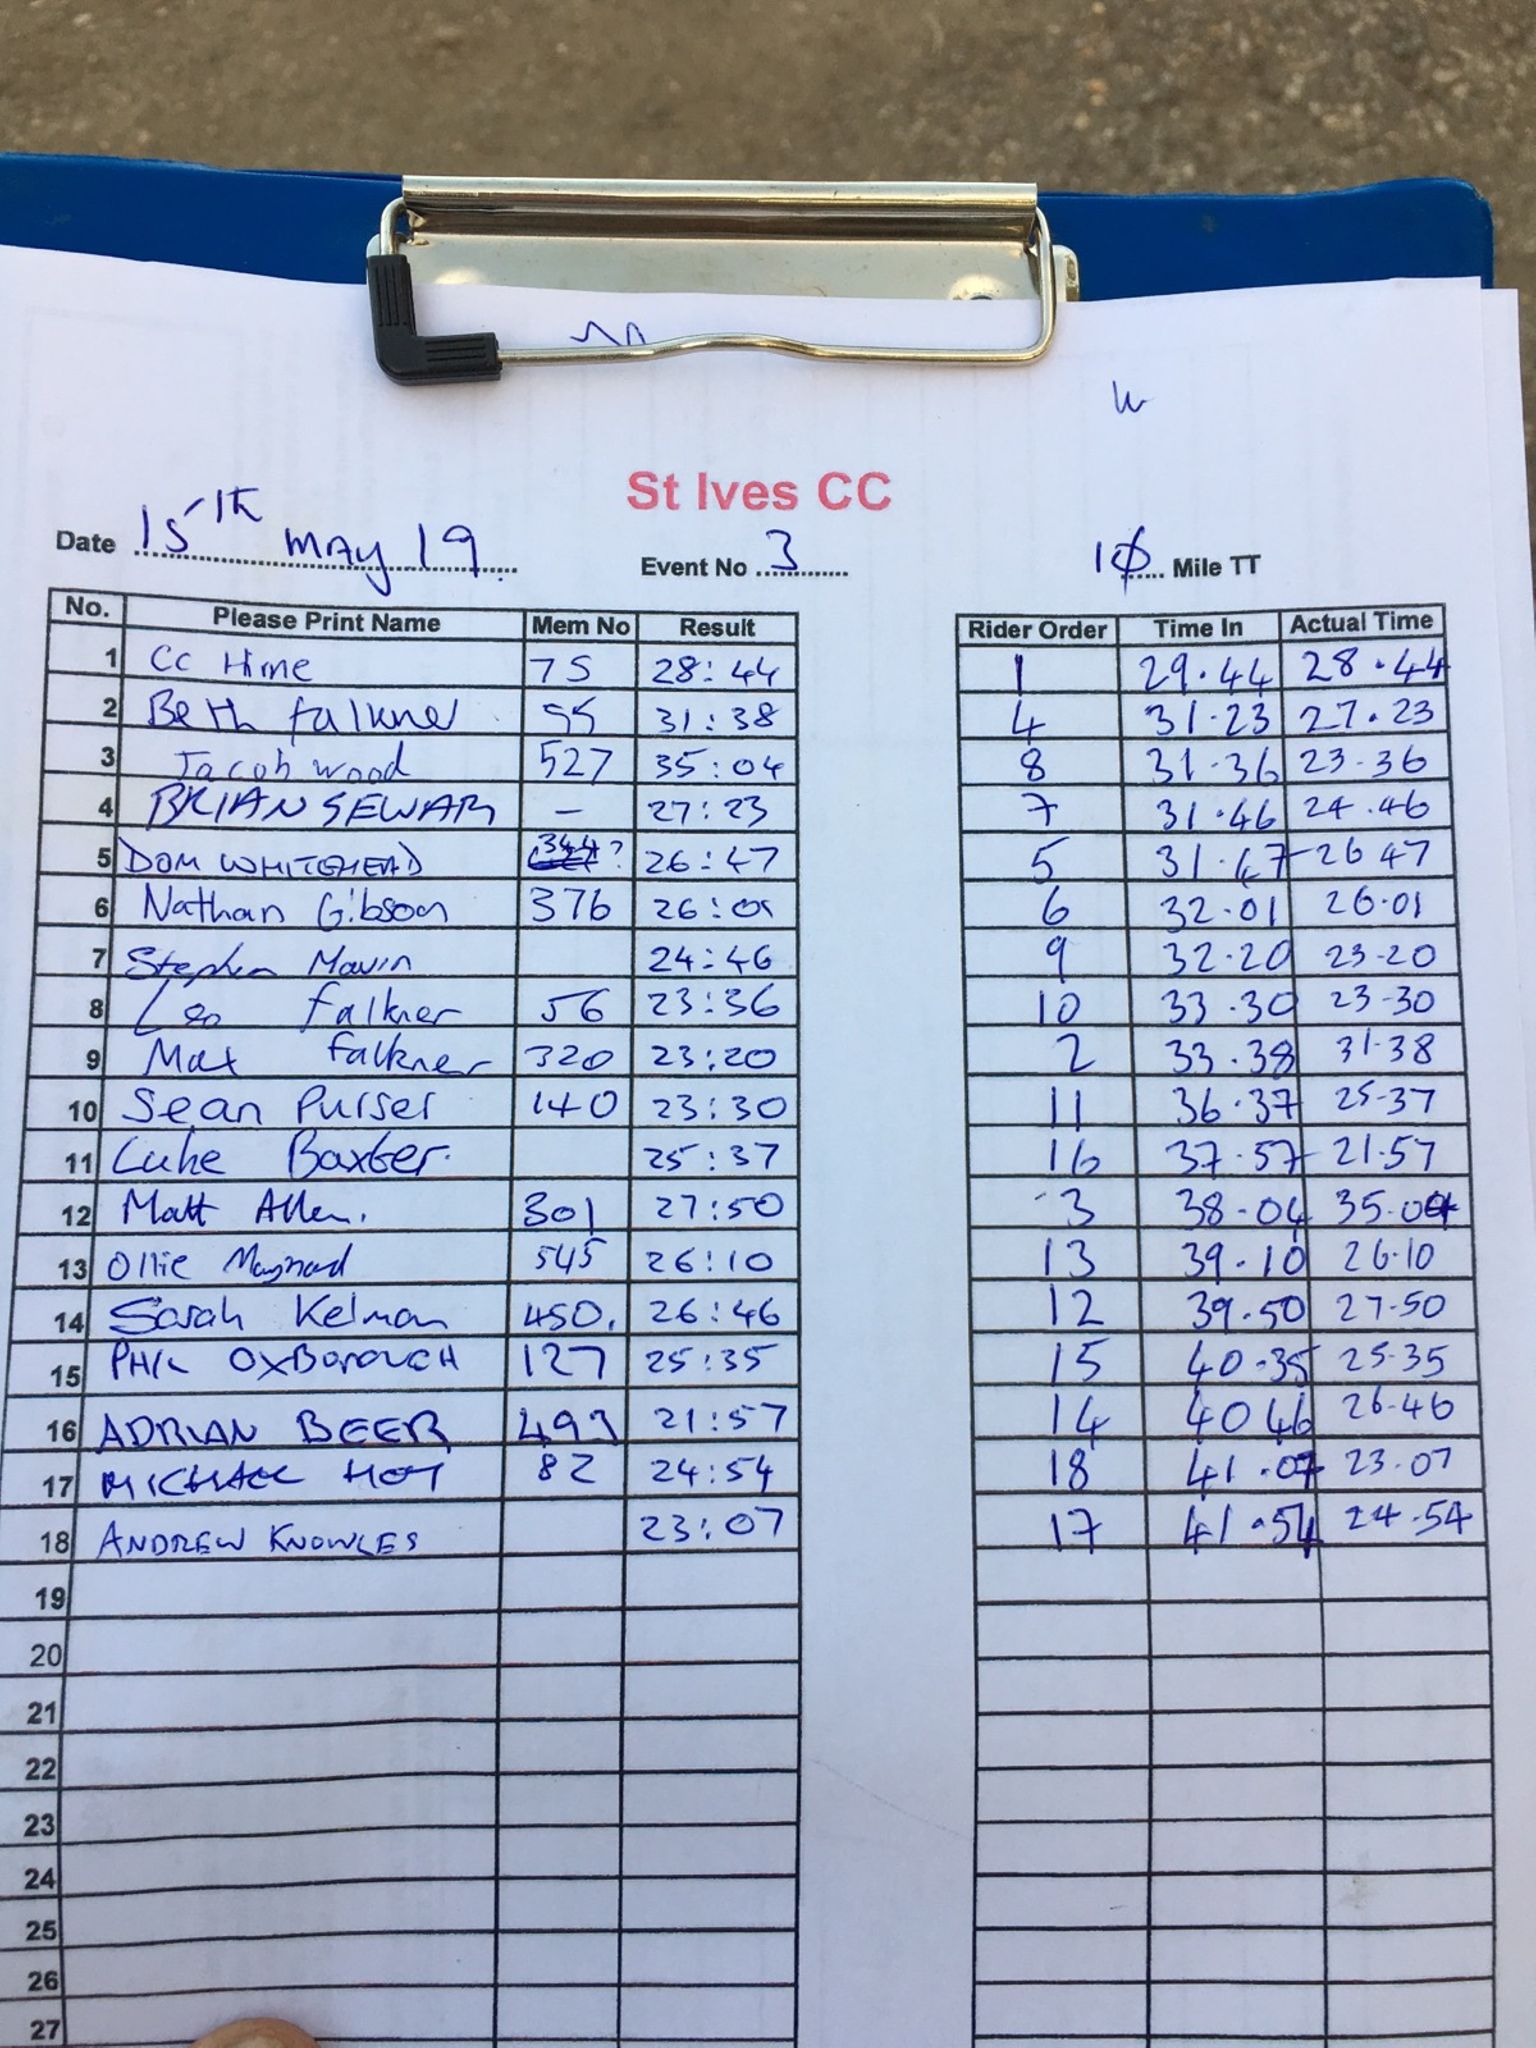 St Ives CC
Date 15th May 19 Event No 3 10 Mile TT
No. Please Print Name Mem No Result Rider Order Time In Actual Time
1 CC Hime 75 28:44 1 29.44 28.44
2 Beth Falkner 95 31:38 4 31.23 27.23
3 Jacob Wood 527 35:04 8 31.36 23.36
4 BRIAN SEWAR - 27:23 7 31.46 24.46
5 DOM WHITEHEAD 344? 26:47 5 31.47 26 47
6 Nathan Gibson 376 26:01 6 32.01 26.01
7 Stephen Mavin 24:46 9 32.20 23.20
8 Leo Falkner 56 23:36 10 33.30 23.30
9 Max Falkner 320 23:20 2 33.38 31.38
10 Sean Purser 140 23:30 11 36.37 25.37
11 Luke Baxter. 25:37 16 37.57 21.57
12 Matt Allen. 301 27:50 3 38.04 35.04
13 Ollie Maynard 545 26:10 13 39.10 26.10
14 Sarah Kelman 450. 26:46 12 39.50 27.50
15 PHIL OXBOROUGH 127 25:35 15 40.35 25.35
16 ADRIAN BEER 493 21:57 14 40 46 26.46
17 MICHAEL HOY 82 24:54 18 41.07 23.07
18 ANDREW KNOWLES 23:07 17 41.54 24.54
19
20
21
22
23
24
25
26
27